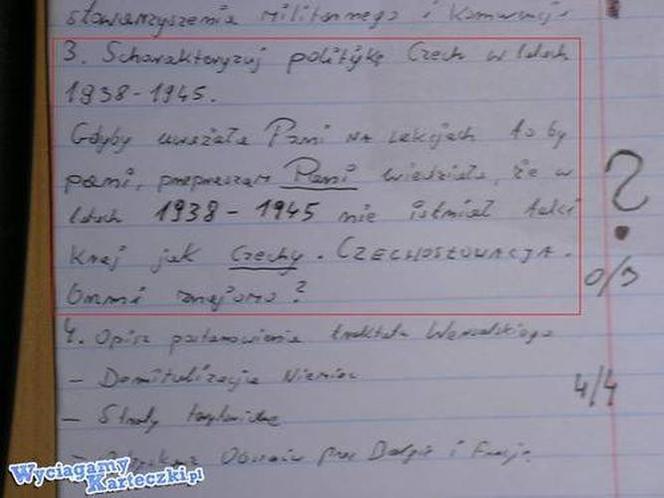 stowarzyszenia Militarnego i Komunicji
3. Scharakteryzuj politykę Czech w latach
1938-1945.
Gdyby uważała Pani na lekcjach to by
pani, przepraszam Pani wiedziała, że w
latach 1938-1945 nie istniał taki
kraj jak Czechy. CZECHOSŁOWACJA.
Brzmi znajomo?
?
0/3
4. Opisz postanowienia traktatu Wersalskiego
- Demilitalizacja Niemiec
4/4
- Straty
Obszarów przez i
Wyciagamy
Karteczki.pl